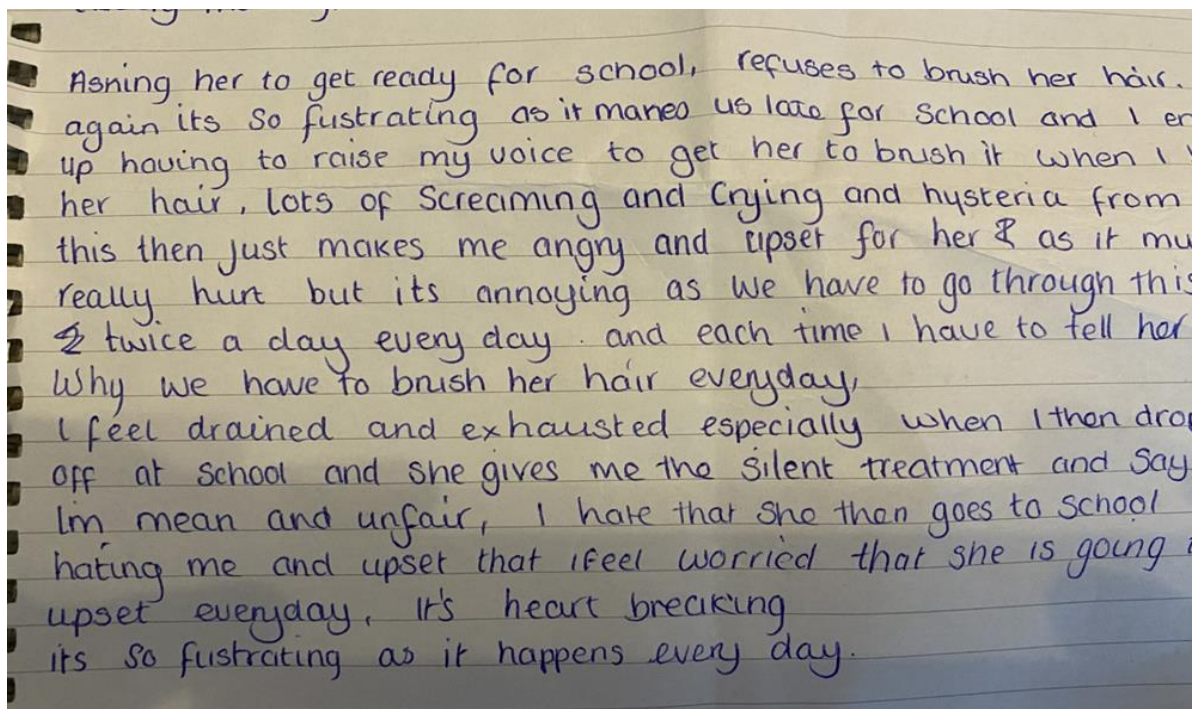 Asking her to get ready for school, refuses to brush her hair.
again its so fustrating as it makes us late for school and I en
up having to raise my voice to get her to brush it when I
her hair, lots of screaming and crying and hysteria from
this then just makes me angry and upset for her & as it mu
really hurt but its annoying as we have to go through this
twice a day every day. and each time I have to tell her
why we have to brush her hair everyday,
I feel drained and exhausted especially when I then drop
off at school and she gives me the silent treatment and say
Im mean and unfair, I hate that she then goes to school
hating me and upset that ifeel worried that she is going
upset everyday, It's heart breaking
its so fustrating as it happens every day.